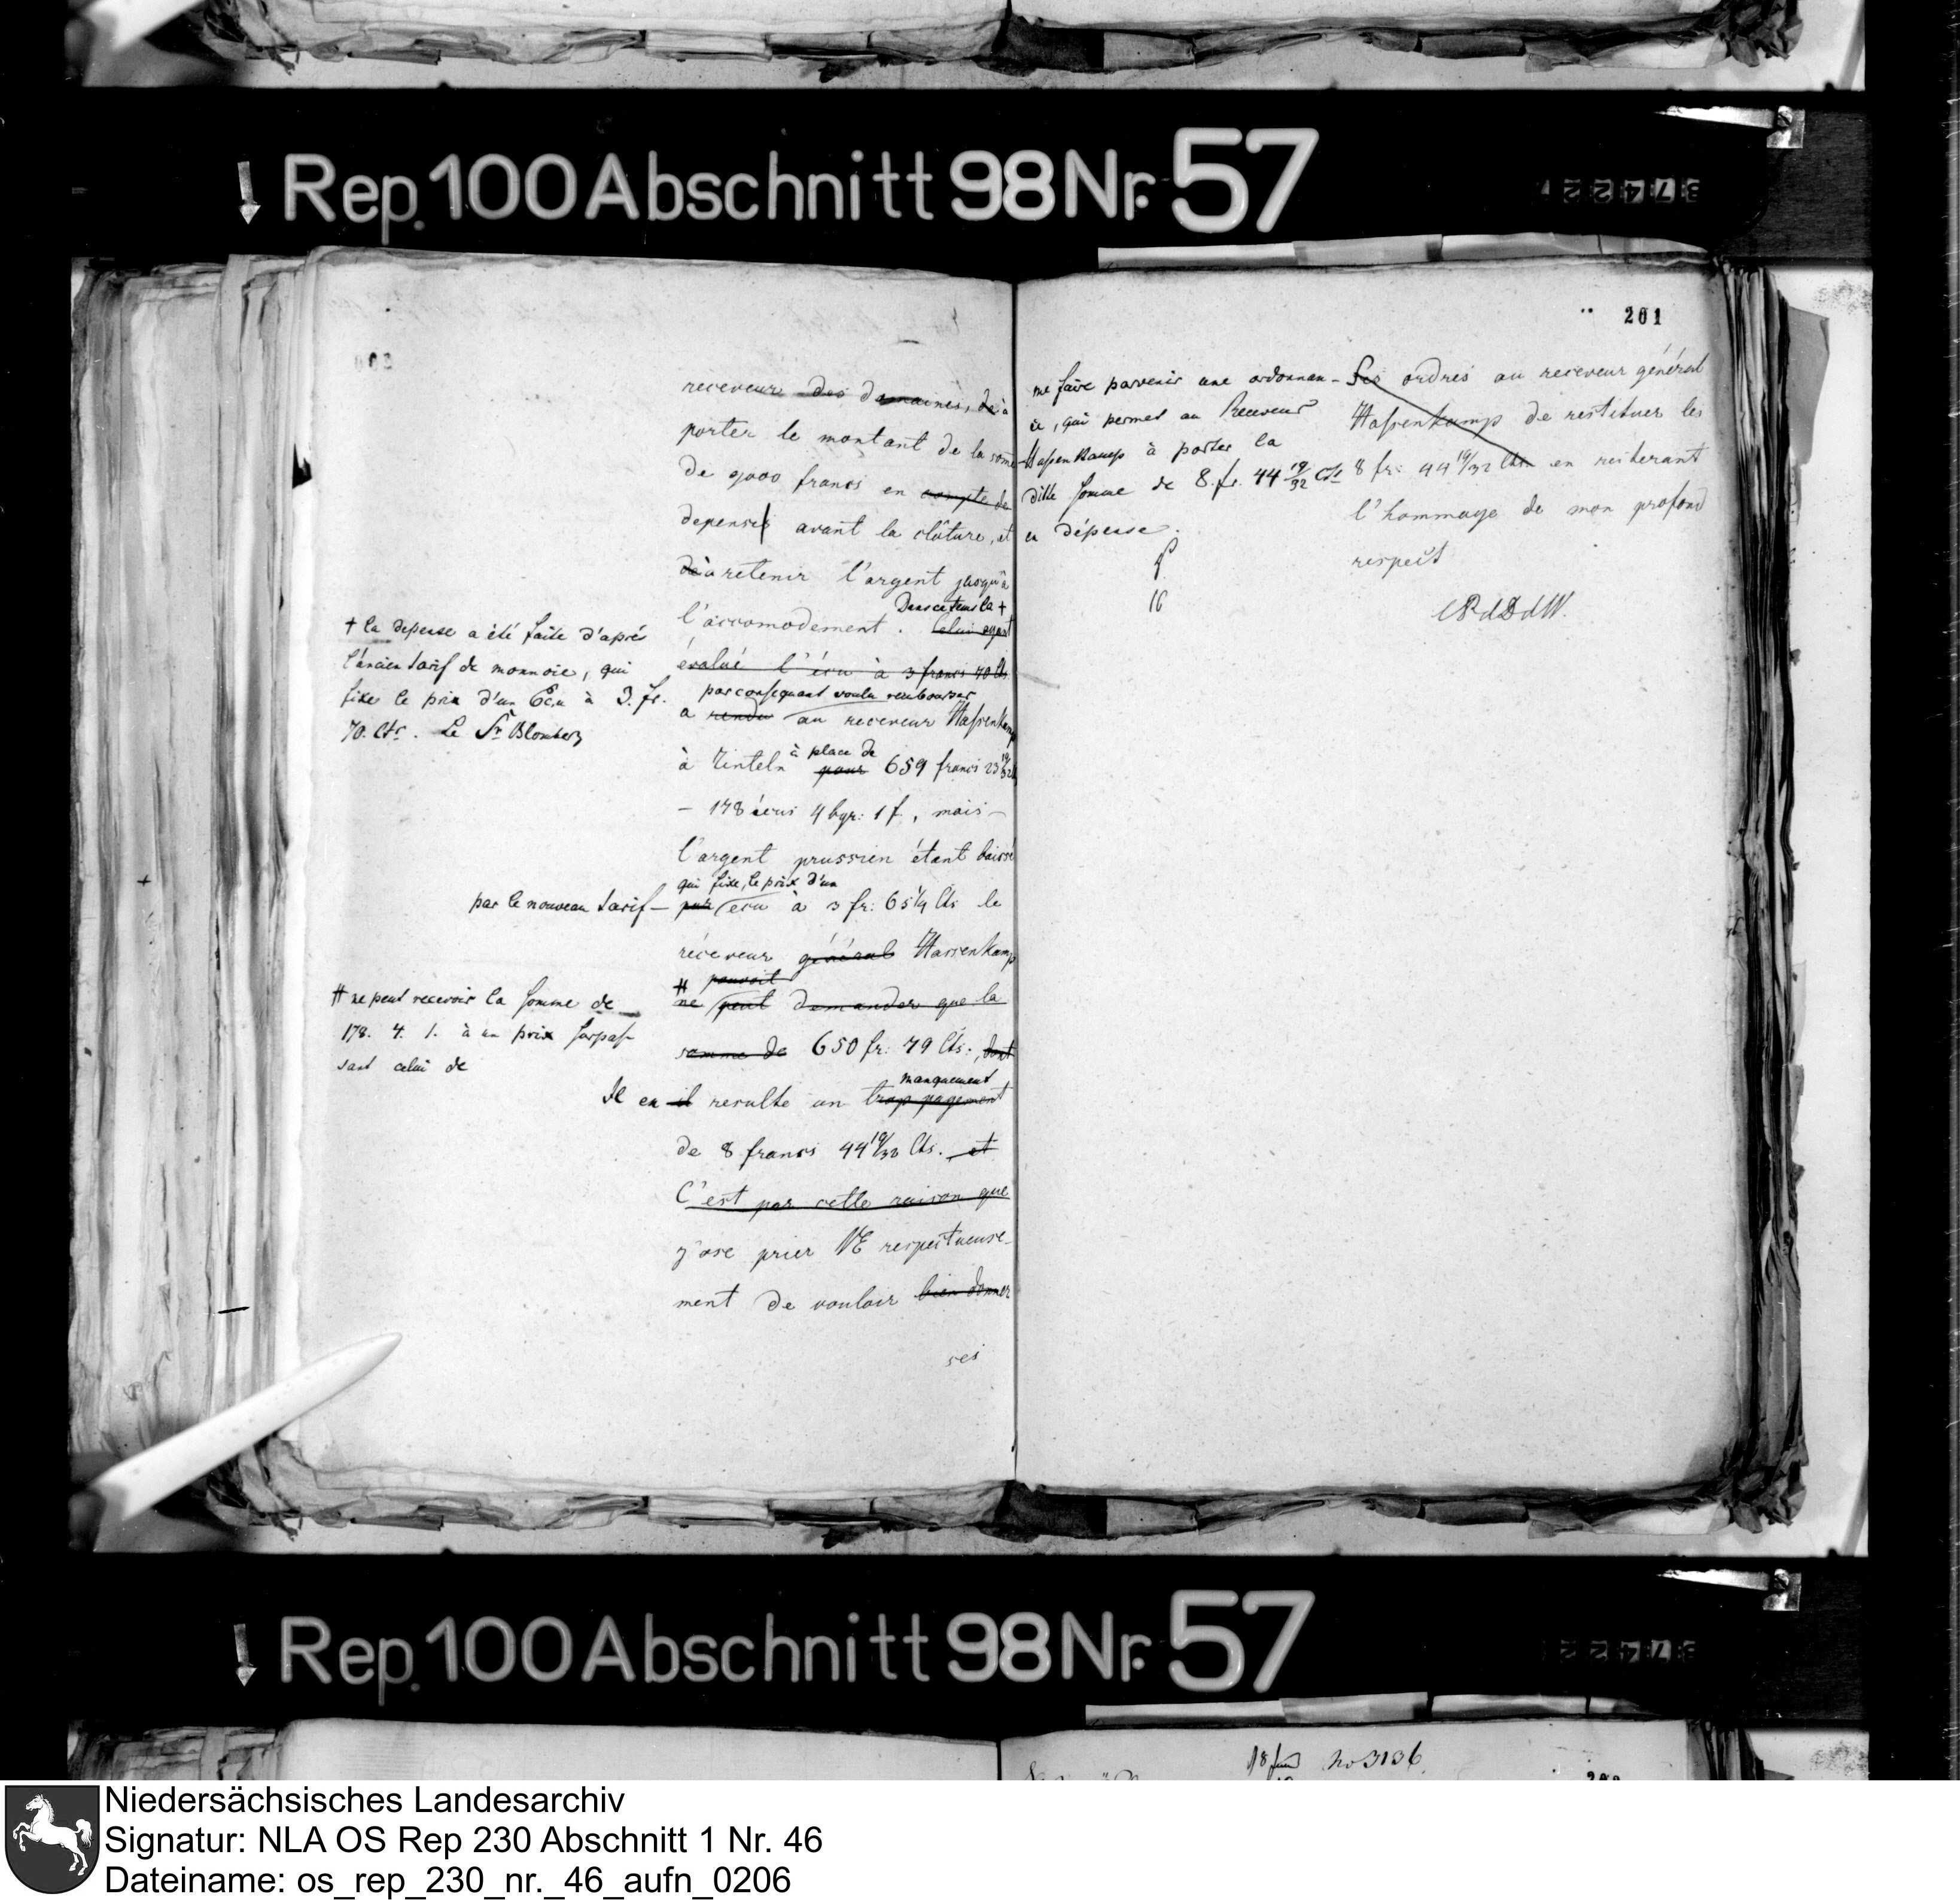 Rep. 100 Abschnitt 98 Nr. 57
37422
receveur des domaines, de à
porter le montant de la somme
de 9000 francs en compte de
depenses avant la clôture, et
de à retenir l'argent jusqu'à
l'accomodement. Celui ayant
Dans ce tems la +
évalué l'écu à 3 francs 70 Cts
par consequant voulu rembourser
a rendu au receveur Hassenkamp
à place de
à Rinteln pour 659 francs 23 19/32
– 178 écus 4 bgr: 1 f., mais –
l'argent prussien étant baissé
qui fixe, le prix d'un
par le nouveau tarif – par ecu à 3 fr: 65 1/4 Cts le
réceveur général Hassenkamp
# pouvoit
ne peut demander que la
somme de 650 fr: 79 Cts:, dont
manquement
Il en il resulte un trop pagement
de 8 francs 44 19/32 Cts. et
C'est par cette raison que
j'ose prier VE respectueuse-
ment de vouloir bien donner
ses
+ la depense a été faite d'aprés
l'ancien tarif de monnoie, qui
fixe le prix d'un Ecu à 3. fr.
70. Cts. Le Sr Blomberg
# ne peut recevoir la somme de
178. 4. 1. à un prix surpas-
sant celui de
201
me faire parvenir une ordonnan-
ce, qui permet au Receveur
Hassenkamp à porter la
ditte somme de 8. fr. 44 19/32 Cts
en dépense.
16
Ses ordres au receveur général
Hassenkamp de restituer les
8 fr: 44 19/32 Cts en reiterant
l'hommage de mon profond
respect
Rep. 100 Abschnitt 98 Nr. 57
37422
18 no 3136.
Niedersächsisches Landesarchiv
Signatur: NLA OS Rep 230 Abschnitt 1 Nr. 46
Dateiname: os_rep_230_nr._46_aufn_0206